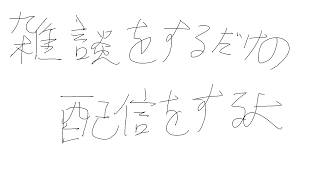 雑談をするだけの
配信をするよ